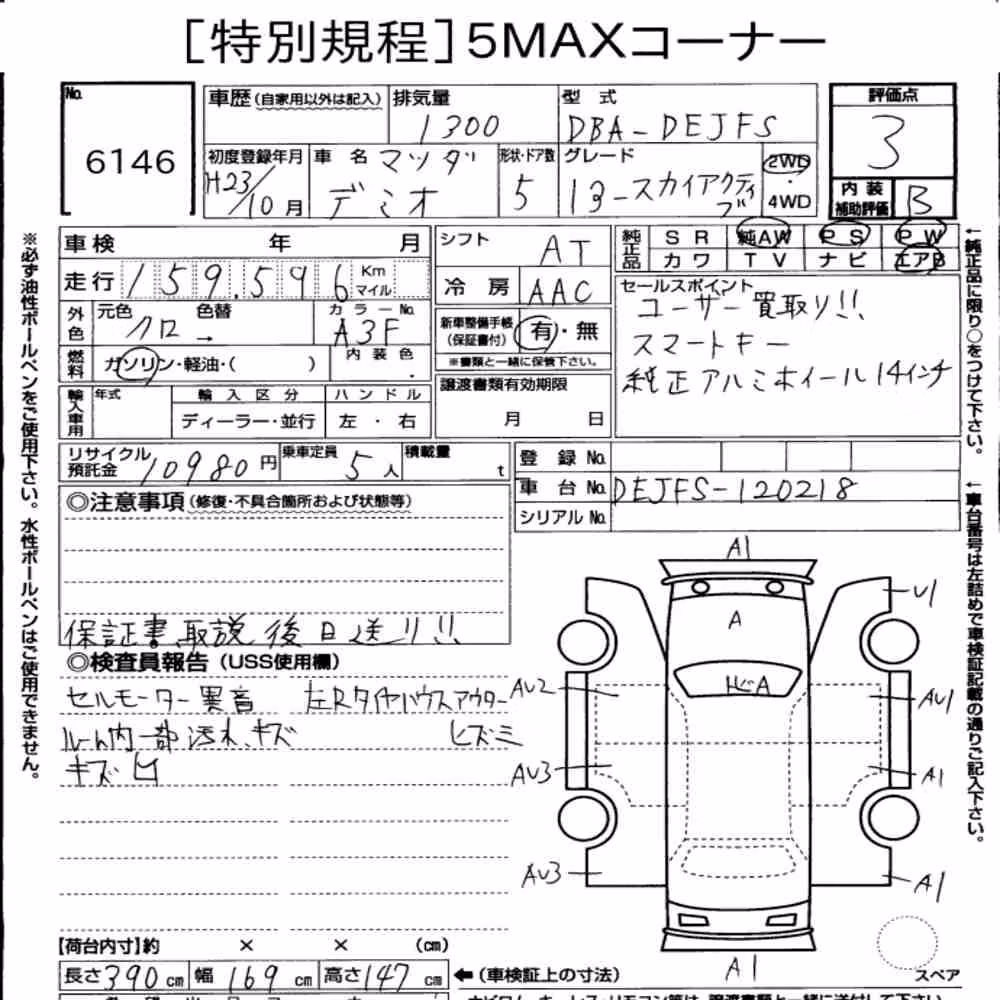 [特別規程]5MAXコーナー
No. 6146
車歴(自家用以外は記入) 排気量 1300 型式 DBA-DEJFS
評価点 3
初度登録年月 H23/10月 車名 マツダ デミオ 形状・ドア数 5 グレード 13-スカイアクティブ 2WD・4WD
内装補助評価 B
車検 年 月
シフト AT
純正品 SR 純AW PS PW
カワ TV ナビ エアB
走行 159,596 Km マイル
冷房 AAC
セールスポイント
ユーザー買取り!!
スマートキー
純正アルミホイール14インチ
外色 元色 クロ → 色替 カラーNo. A3F
新車整備手帳(保証書付) 有・無
※書類と一緒に保管下さい。
燃料 ガソリン・軽油・( ) 内装色
譲渡書類有効期限
月 日
輸入車用 年式 輸入区分 ハンドル
ディーラー・並行 左・右
リサイクル預託金 10980円 乗車定員 5人 積載量 t
登録No.
車台No. DEJFS-120218
シリアルNo.
◎注意事項(修復・不具合箇所および状態等)
保証書取説後日送り!!
◎検査員報告(USS使用欄)
セルモーター異音 左Rタイヤハウスアウター
ルーム内一部汚れ、キズ ヒズミ
キズ凹
A1
A
U1
AU2
AU1
AU3
A1
AU3
A1
A1
スペア
【荷台内寸】約 × × (cm)
長さ390cm 幅169cm 高さ147cm ←(車検証上の寸法)
※必ず油性ボールペンをご使用下さい。水性ボールペンはご使用できません。
←純正品に限り○をつけて下さい。
←車台番号は左詰めで車検証記載の通りご記入下さい。